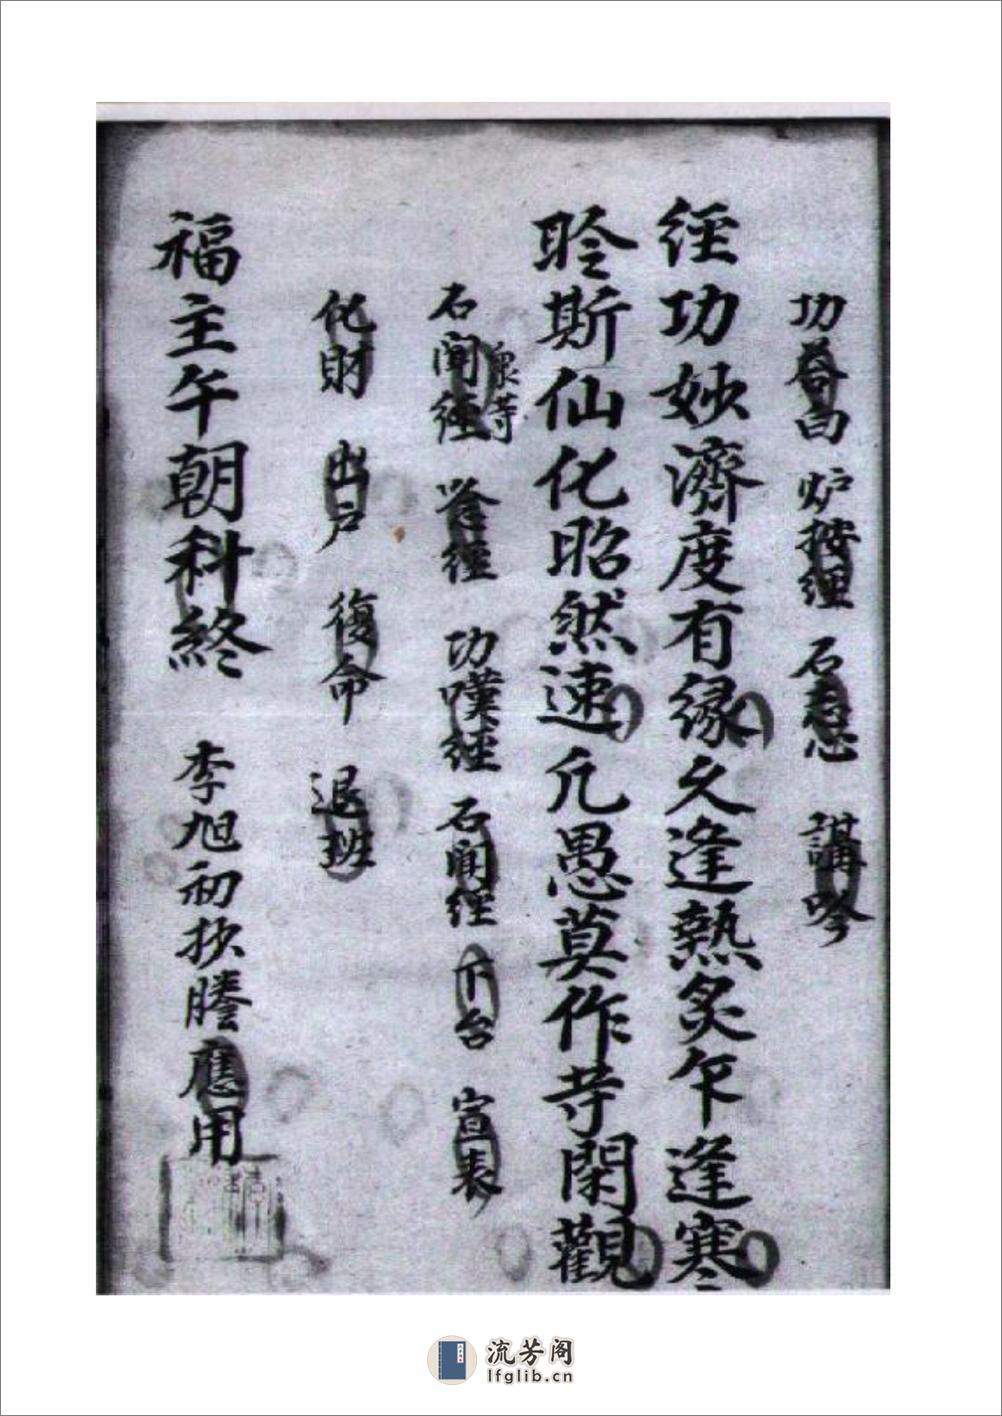 功啓白 炉按經 石志心 講吟
經功妙濟度有緣久逢熱炙乍逢寒
聆斯仙化昭然速凢愚莫作等閑觀
石聞經 衆等 經 功嘆經 石聞經 下台 宣表
化財 出户 復命 退班
福主午朝科終 李旭初抄謄應用
流芳阁
lfglib.cn